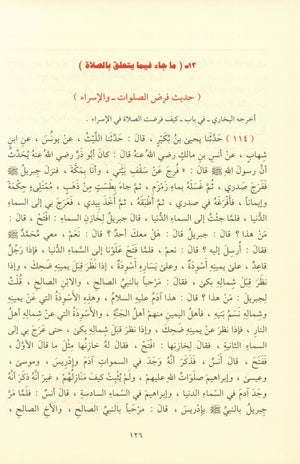 ١٣ـ ( ما جاء فيما يتعلق بالصلاة )
( حديث فرض الصلوات ـ والإسراء )
أخرجه البخاري ـ في باب ـ كيف فرضت الصلاة في الإسراء .
( ١١٤ ) حَدَّثَنَا يحيىٰ بنُ بُكَيْرٍ ، قَالَ : حَدَّثَنا اللَّيْثُ ، عن يونُسَ ، عنِ ابنِ
شِهابٍ ، عنْ أنسِ بنِ مالكٍ رضي اللهُ عنهُ قالَ : كانَ أبُو ذَرٍّ رضي اللهُ عنهُ يُحَدِّثُ
أنَّ رسولَ اللهِ ﷺ قالَ : « فُرِجَ عَنْ سَقْفِ بَيْتِي ، وأنَا بِمَكَّةَ ، فنزلَ جِبريلُ ﷺ
فَفَرَجَ صَدْرِي ، ثُمَّ غَسَلَهُ بماءِ زَمْزَمَ ، ثُمَّ جاءَ بِطَسْتٍ مِنْ ذَهَبٍ ، مُمْتَلِىءٍ حِكْمَةً
وإيماناً ، فأفْرَغَهُ في صدرِي ، ثُمَّ أَطْبَقَهُ ، ثُمَّ أخَذَ بِيدِي ، فعَرَجَ بِي إلى السماءِ
الدُّنيا ، فلمَّا جِئْتُ إلى السماءِ الدُّنيا ، قالَ جبريلُ لِخازِنِ السماءِ : افْتَحْ ، قالَ :
مَنْ هذا ؟ قالَ : جِبريلُ قالَ : هَلْ معكَ أحدٌ ؟ قالَ : نَعَمْ ، معِي مُحمَّدٌ ﷺ
فقالَ : أُرسِلَ إليه ؟ قالَ : نعمْ . فلمَّا فَتَحَ عَلَوْنا إلى السَّماءِ الدُّنيا ، فإذا رَجُلٌ
قاعِدٌ ، علىٰ يمينِهِ أسْوِدَةٌ ، وعلىٰ يَسَارِهِ أسْوِدَةٌ ، إذا نظَرَ قِبَلَ يمينِهِ ضَحِكَ ، وإذا
نظَرَ قِبَلَ شِمالِهِ بكىٰ ، فقالَ : مَرْحَباً بالنبيِّ الصالحِ ، والابْنِ الصالحِ ، قُلْتُ
لِجبريلَ : مَنْ هذا ؟ قالَ : هذا آدمُ عليهِ السلامُ ، وهذِهِ الأسْوِدَةُ التي عنْ يمينِهِ
وشِمالِهِ نَسَمُ بَنِيهِ ، فأهلُ اليمينِ منهمْ أهلُ الجَنَّةِ ، والأسْوِدَةُ التي عنْ شِمالِهِ أهلُ
النارِ ، فإذا نظَرَ عنْ يمينِهِ ضَحِكَ ، وإذا نظَرَ قِبَلَ شِمالِهِ بكىٰ ، حتى عَرَجَ بِي إلى
السماءِ الثانيةِ ، فقالَ لِخازِنِها : افْتَحْ ، فقالَ لهُ خازِنُها مِثْلَ ما قالَ الأوَّلُ ،
فَفَتَحَ ، قالَ أنسٌ ، فَذَكَرَ أنَّهُ وَجَدَ في السمواتِ آدمَ وإدْرِيسَ ، وموسىٰ ،
وعيسىٰ ، وإبراهيمَ صلَوَاتُ اللهِ عليهِمْ ، ولَمْ يُثْبِتْ كيفَ مَنَازِلُهُمْ ، غيرَ أنَّهُ ذكَرَ أنَّهُ
وجَدَ آدمَ في السَّماءِ الدنيا ، وإبراهيمَ في السماءِ السادسةِ ، قالَ أنسٌ : فلمَّا مَرَّ
جِبريلُ بالنبيِّ ﷺ بإدْرِيسَ ، قالَ : مَرْحَباً بالنبيِّ الصالحِ ، والأخِ الصالحِ ،
١٢٦